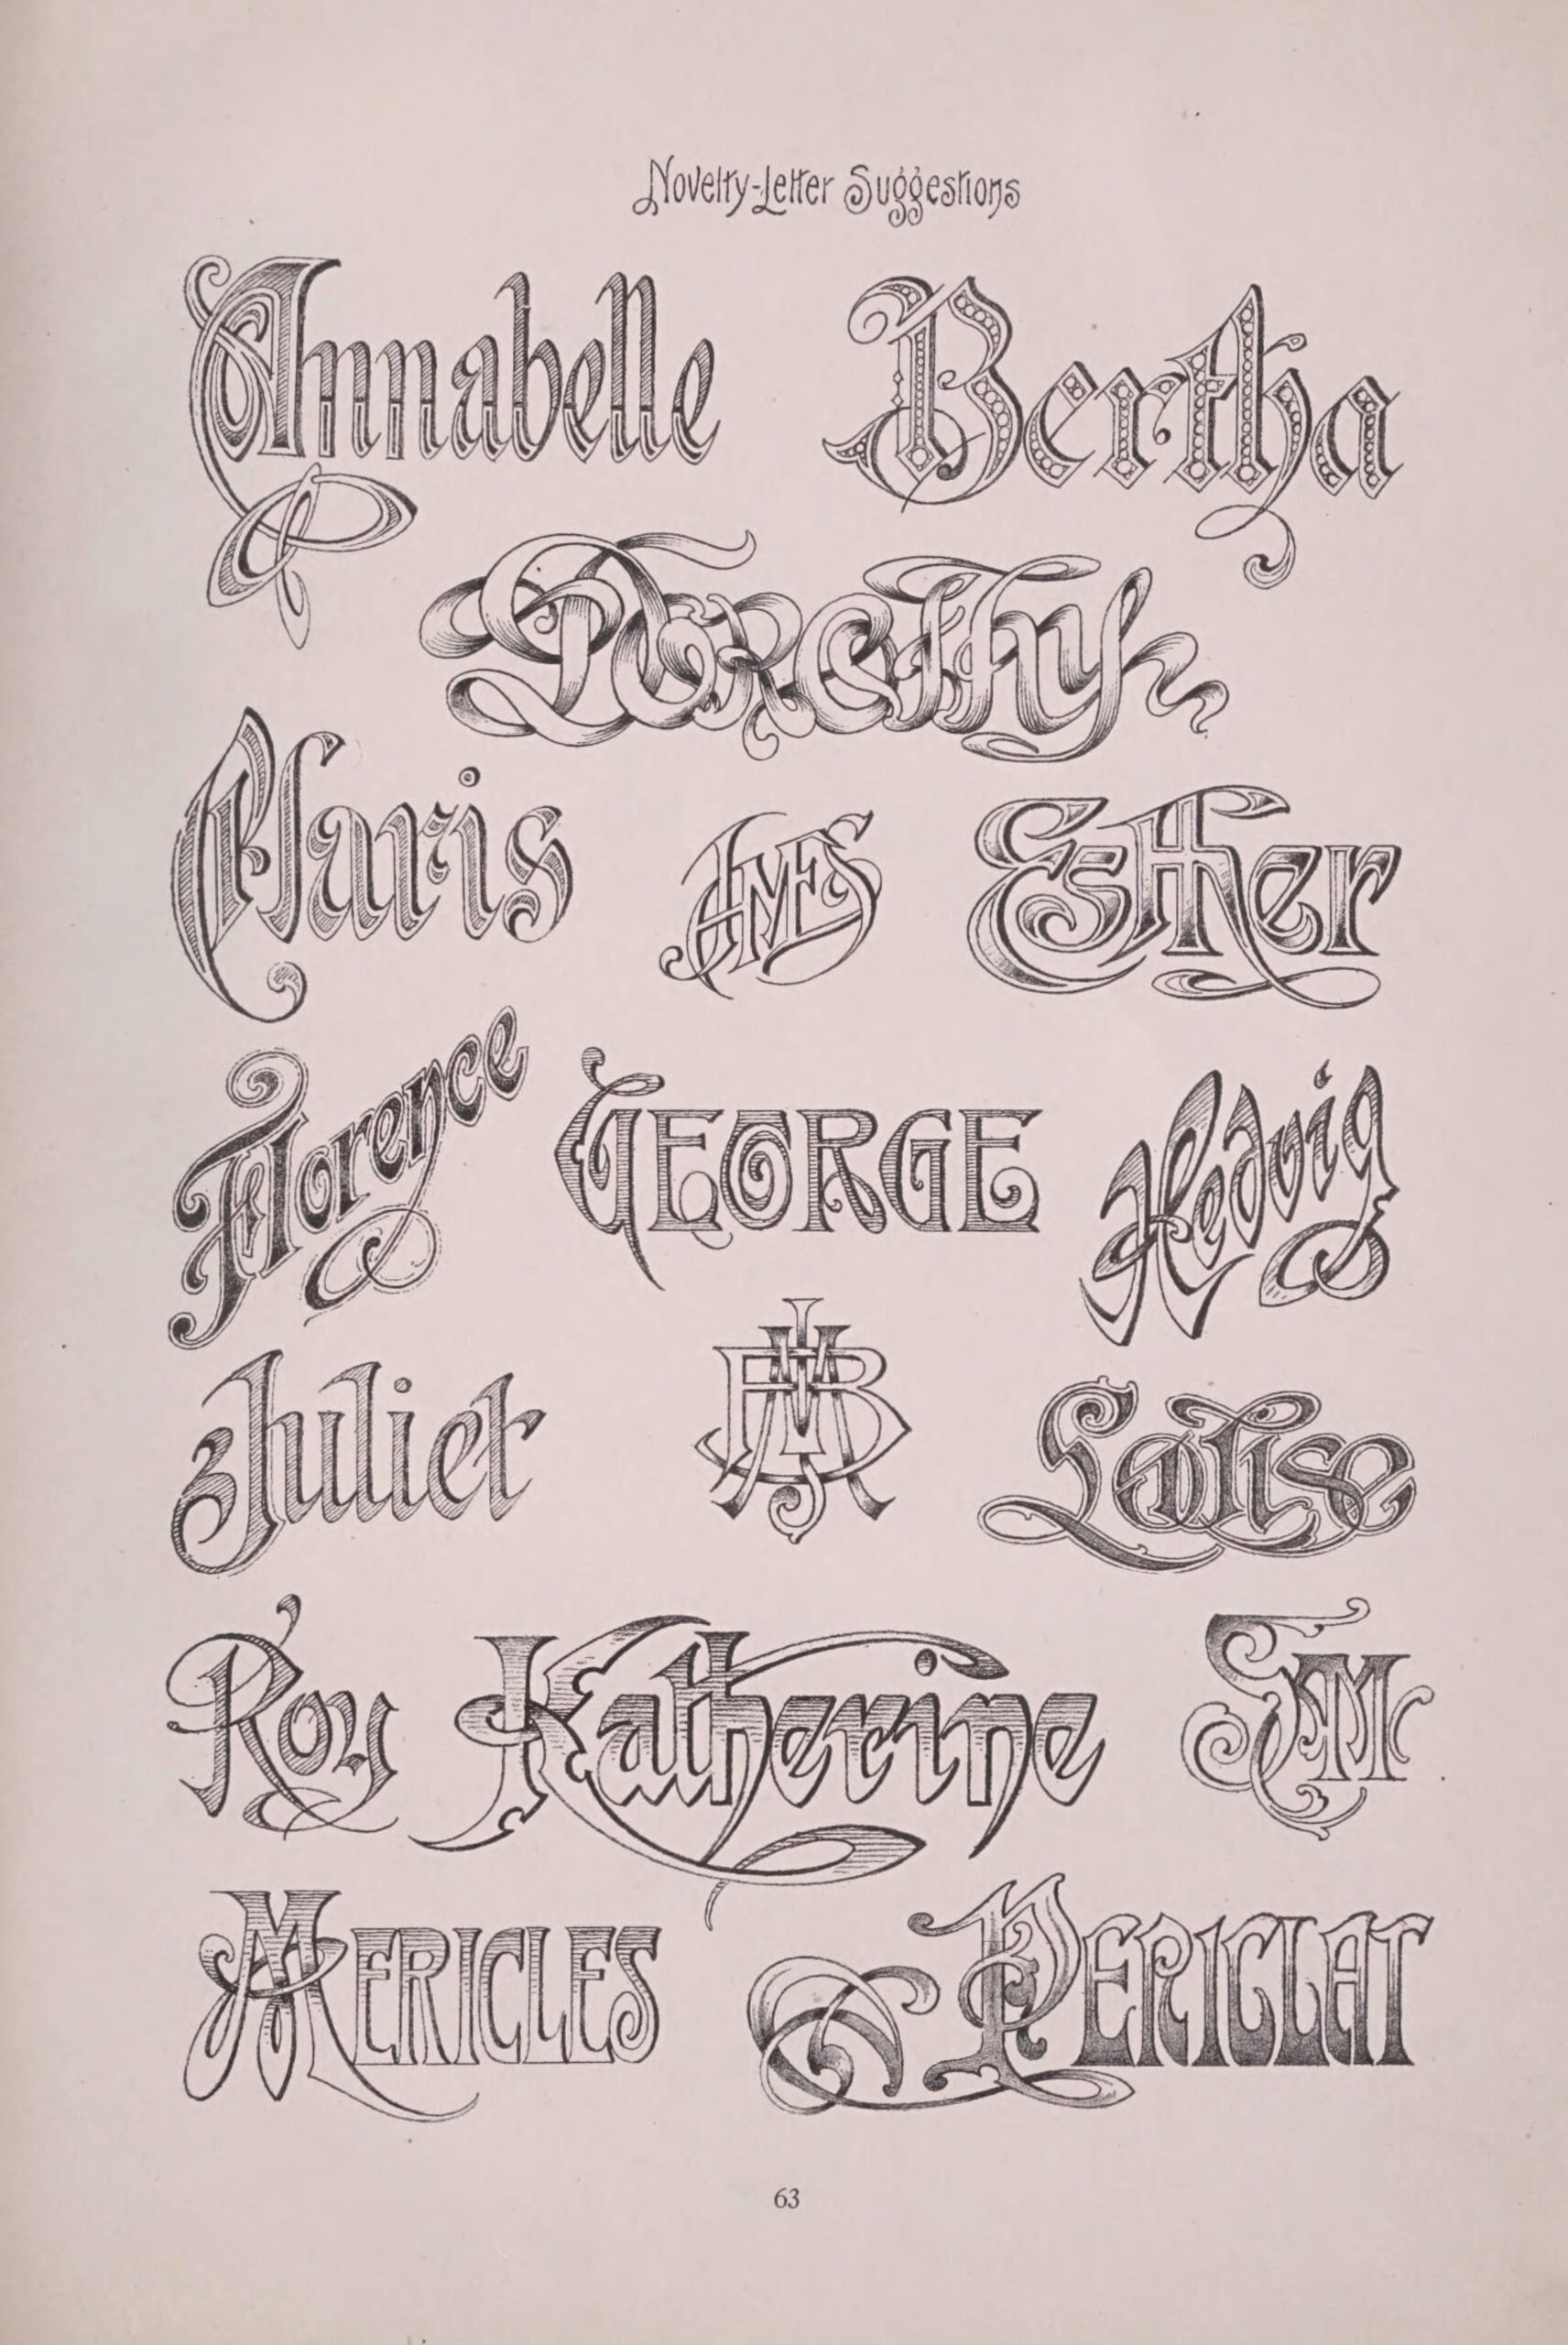 Novelty-Letter Suggestions
Annabelle Bertha
Dorothy
AMES Esther
Florence GEORGE Hedvig
Juliet Louise
Roy Katherine
MERICLES PERICLAT
63